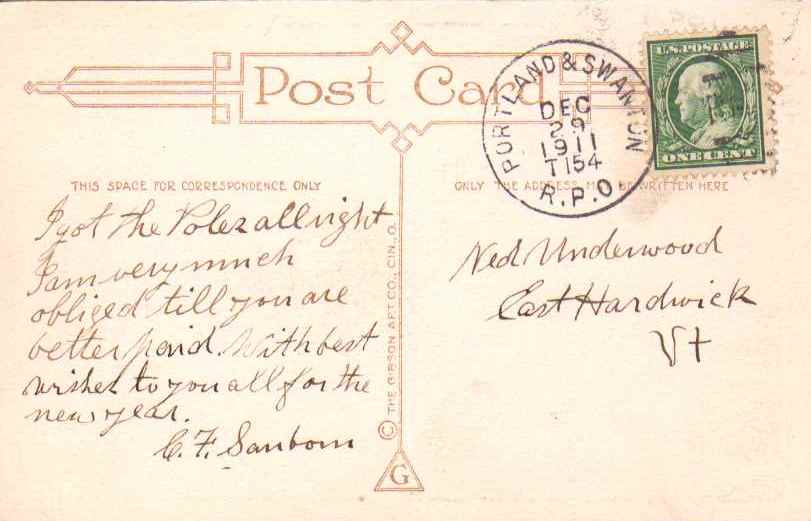 Post Card
PORTLAND & SWANTON
DEC
29
1911
T154
R.P.O
U.S. POSTAGE
ONE CENT
THIS SPACE FOR CORRESPONDENCE ONLY
ONLY THE ADDRESS MAY BE WRITTEN HERE
I got the Poles all right
I am very much
obliged till you are
better paid. With best
wishes to you all for the
new year.
C. F. Sanborn
Ned Underwood
East Hardwick
Vt
© THE GIBSON ART CO., CIN., O.
G